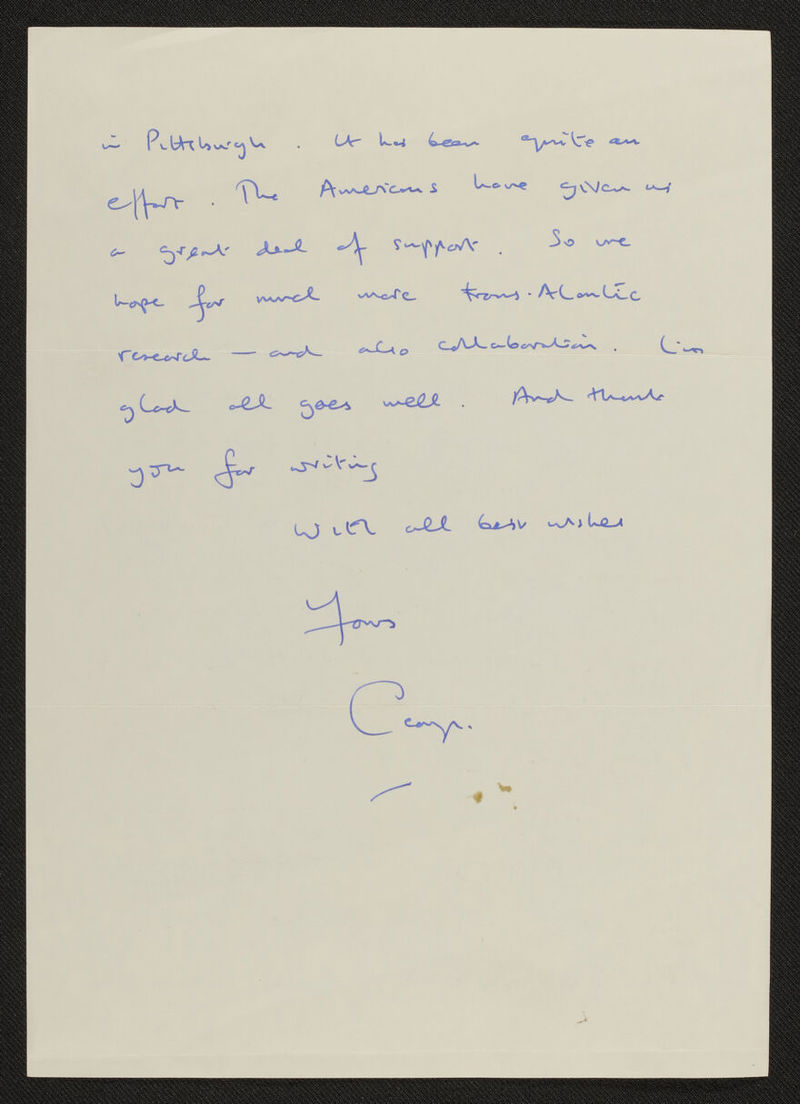 in Pittsburgh. It has been quite an
effort. The Americans have given us
a great deal of support. So we
hope for much more trans-Atlantic
research — and also collaboration. I'm
glad all goes well. And thank
you for writing
With all best wishes
Yours